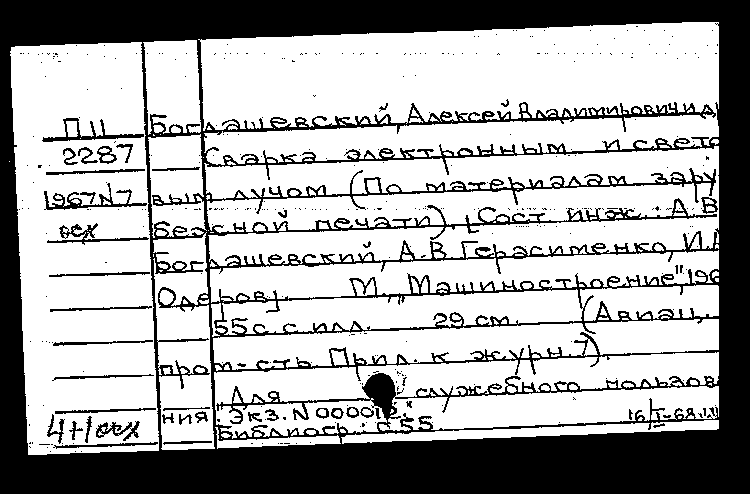 П 11 Богдашевский, Алексей Владимирович и д
2287 Сварка электронным и свето
1967 N7 вым лучом (По материалам зару
осх бежной печати). [Сост. инж.: А.В
Богдашевский, А.В Герасименко, И.
Одеров]. М., "Машиностроение", 196
55 с. с илл. 29 см. (Авиац.
пром-сть. Прил. к журн. 7).
"Для служебного пользова
ния. Экз. N 00001"
4+1 осх Библиогр.: с. 55